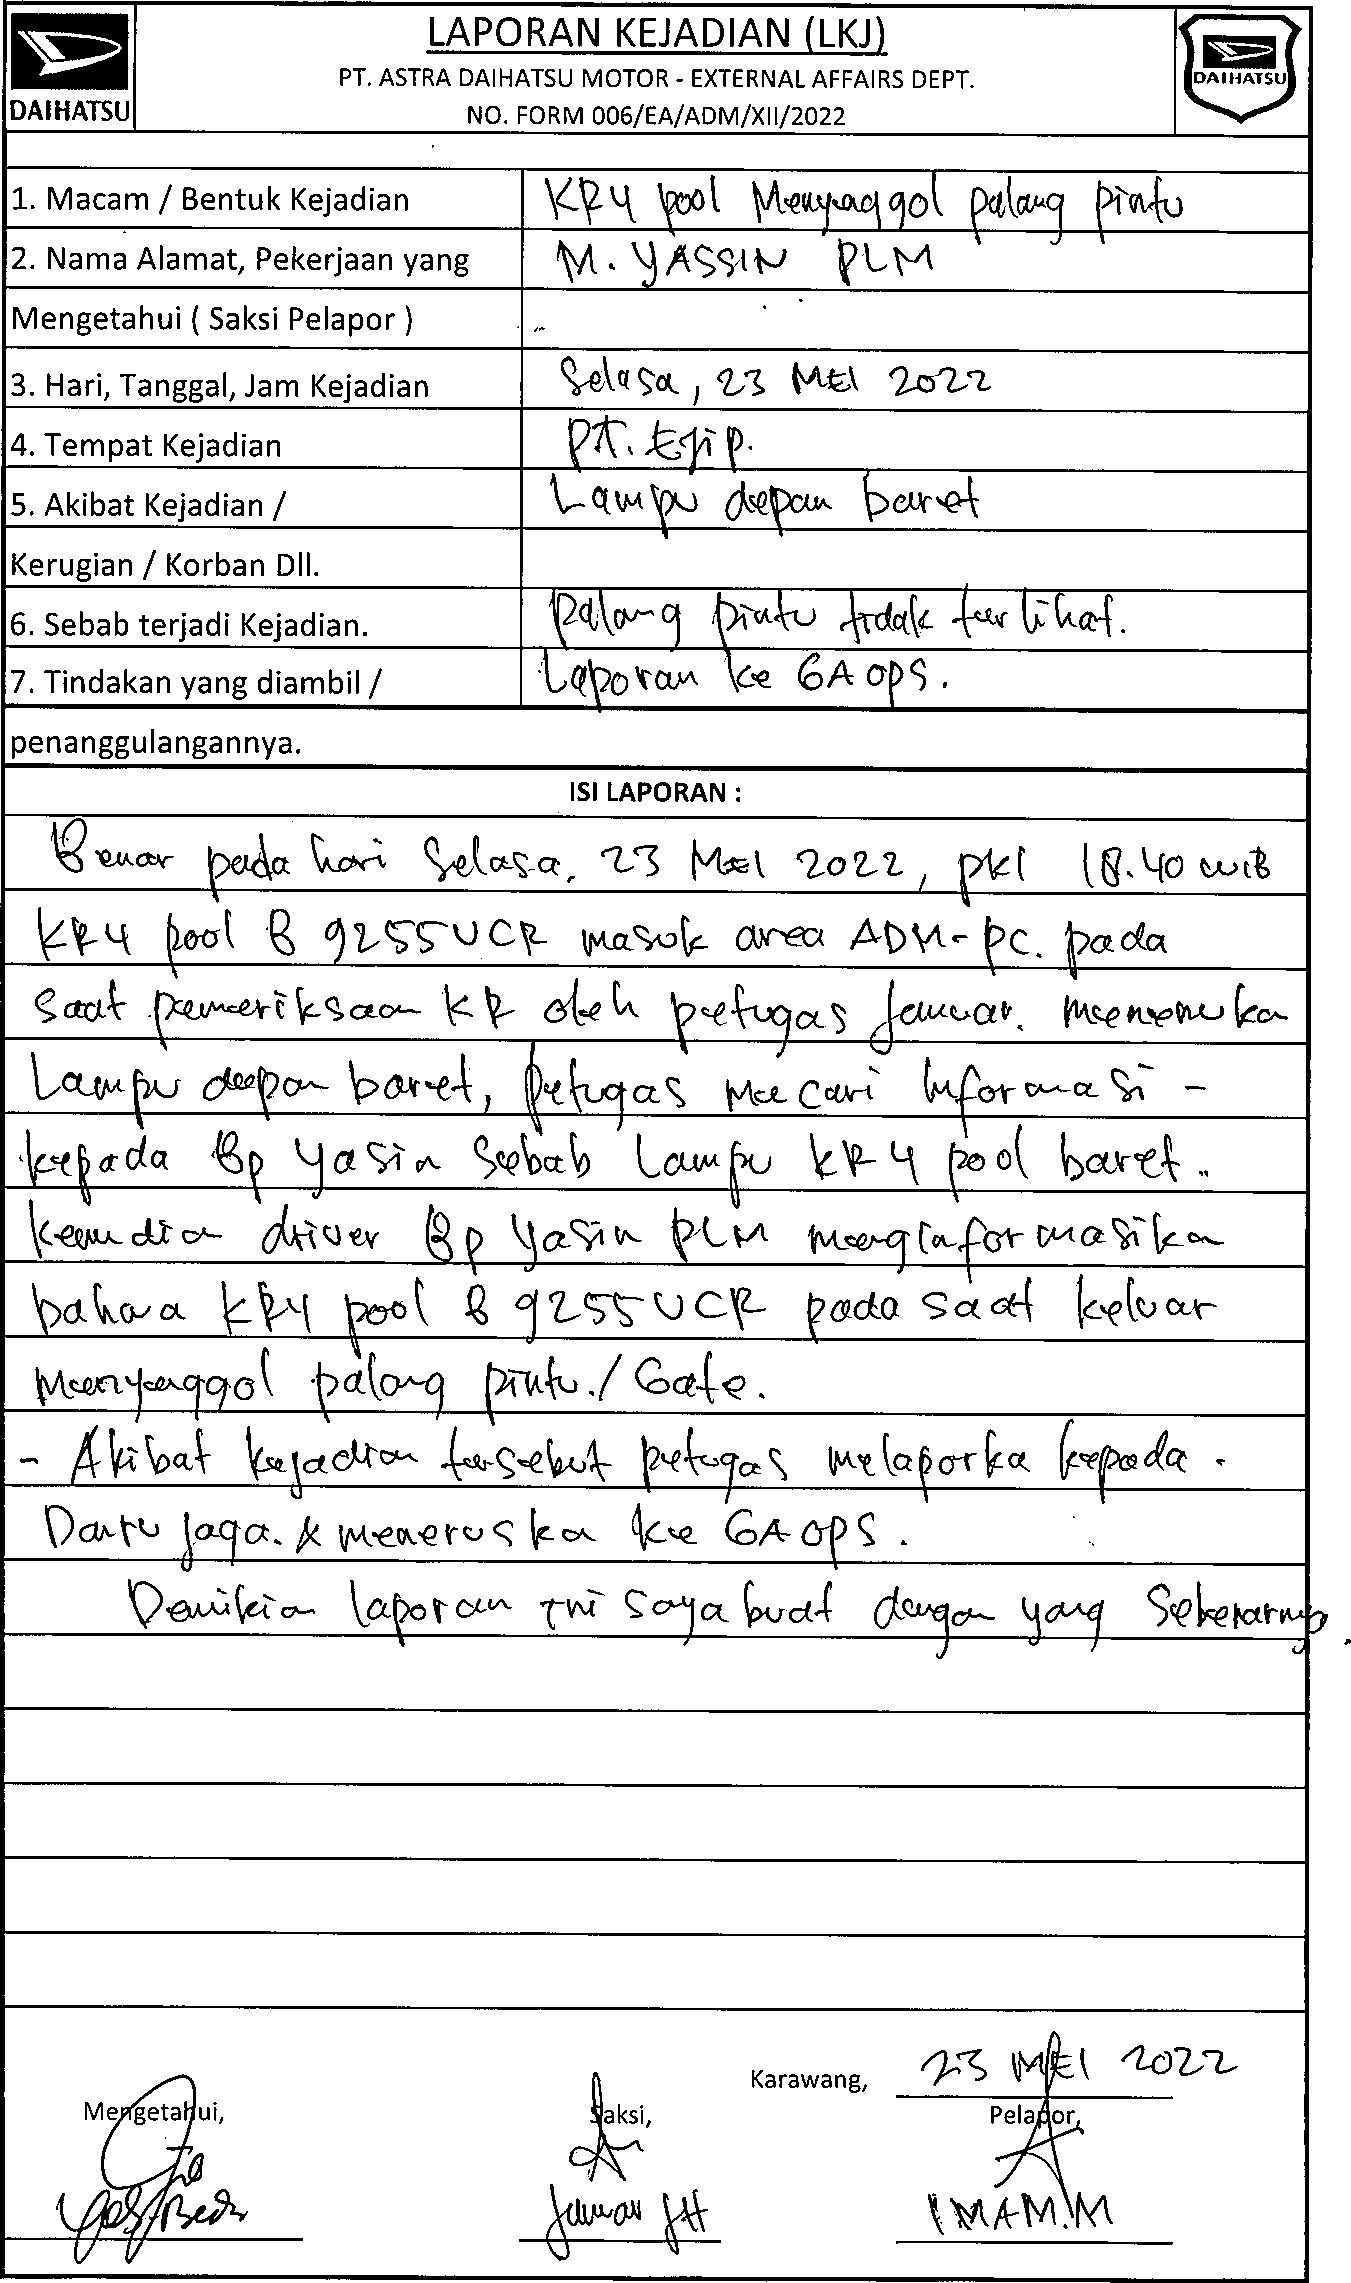 LAPORAN KEJADIAN (LKJ)
PT. ASTRA DAIHATSU MOTOR - EXTERNAL AFFAIRS DEPT.
NO. FORM 006/EA/ADM/XII/2022
DAIHATSU
DAIHATSU
1. Macam / Bentuk Kejadian KR4 pool Menyaggol palang pintu
2. Nama Alamat, Pekerjaan yang M. YASSIN PLM
Mengetahui ( Saksi Pelapor )
3. Hari, Tanggal, Jam Kejadian Selasa, 23 MEI 2022
4. Tempat Kejadian PT. Ejip.
5. Akibat Kejadian / Lampu depan baret
Kerugian / Korban Dll.
6. Sebab terjadi Kejadian. palang pintu tidak terlihat.
7. Tindakan yang diambil / Laporan ke GA OPS.
penanggulangannya.
ISI LAPORAN :
Benar pada hari Selasa, 23 MEI 2022, pkl 18.40 wib
KR4 pool B 9255 UCR masuk area ADM-PC. pada
saat pemeriksaan KR oleh petugas Januar. menemuka
Lampu depan baret, petugas mecari Informasi -
kepada Bp Yasin sebab Lampu KR4 pool baret..
kemudia driver Bp Yasin PLM menginformasika
bahwa KR4 pool B 9255 UCR pada saat keluar
Menyenggol palang pintu./ Gate.
- Akibat kejadian tersebut petugas melaporka kepada.
Danru jaga. & meneruska ke GA OPS.
Demikian laporan ini saya buat dengan yang Sebenarnya.
Karawang, 23 MEI 2022
Mengetahui, Saksi, Pelapor,
Januar JH IMAM.M